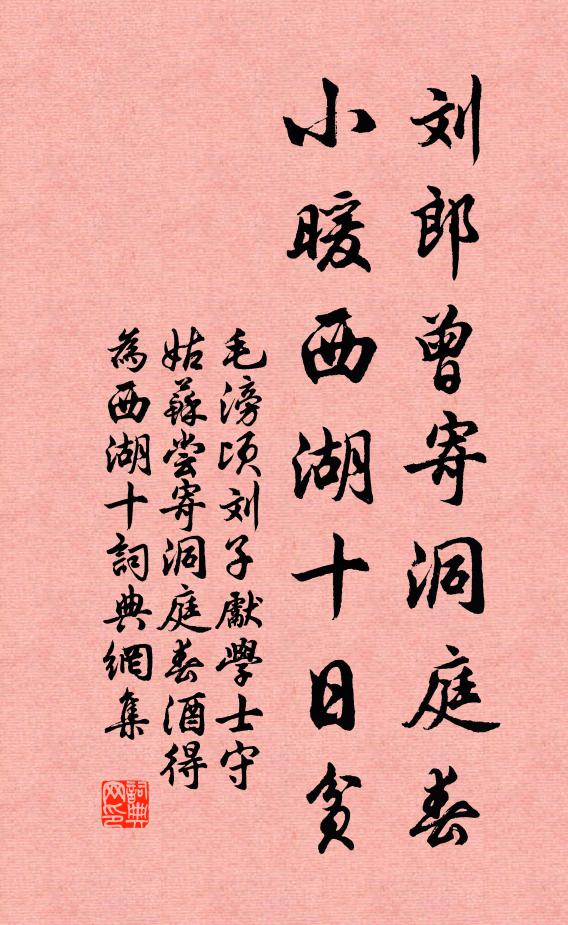 刘郎曾寄洞庭春
小暖西湖十日贫
毛滂顷刘子献學士守
姑蘇尝寄洞庭春酒得
為西湖十詞典網集
詞典
网印